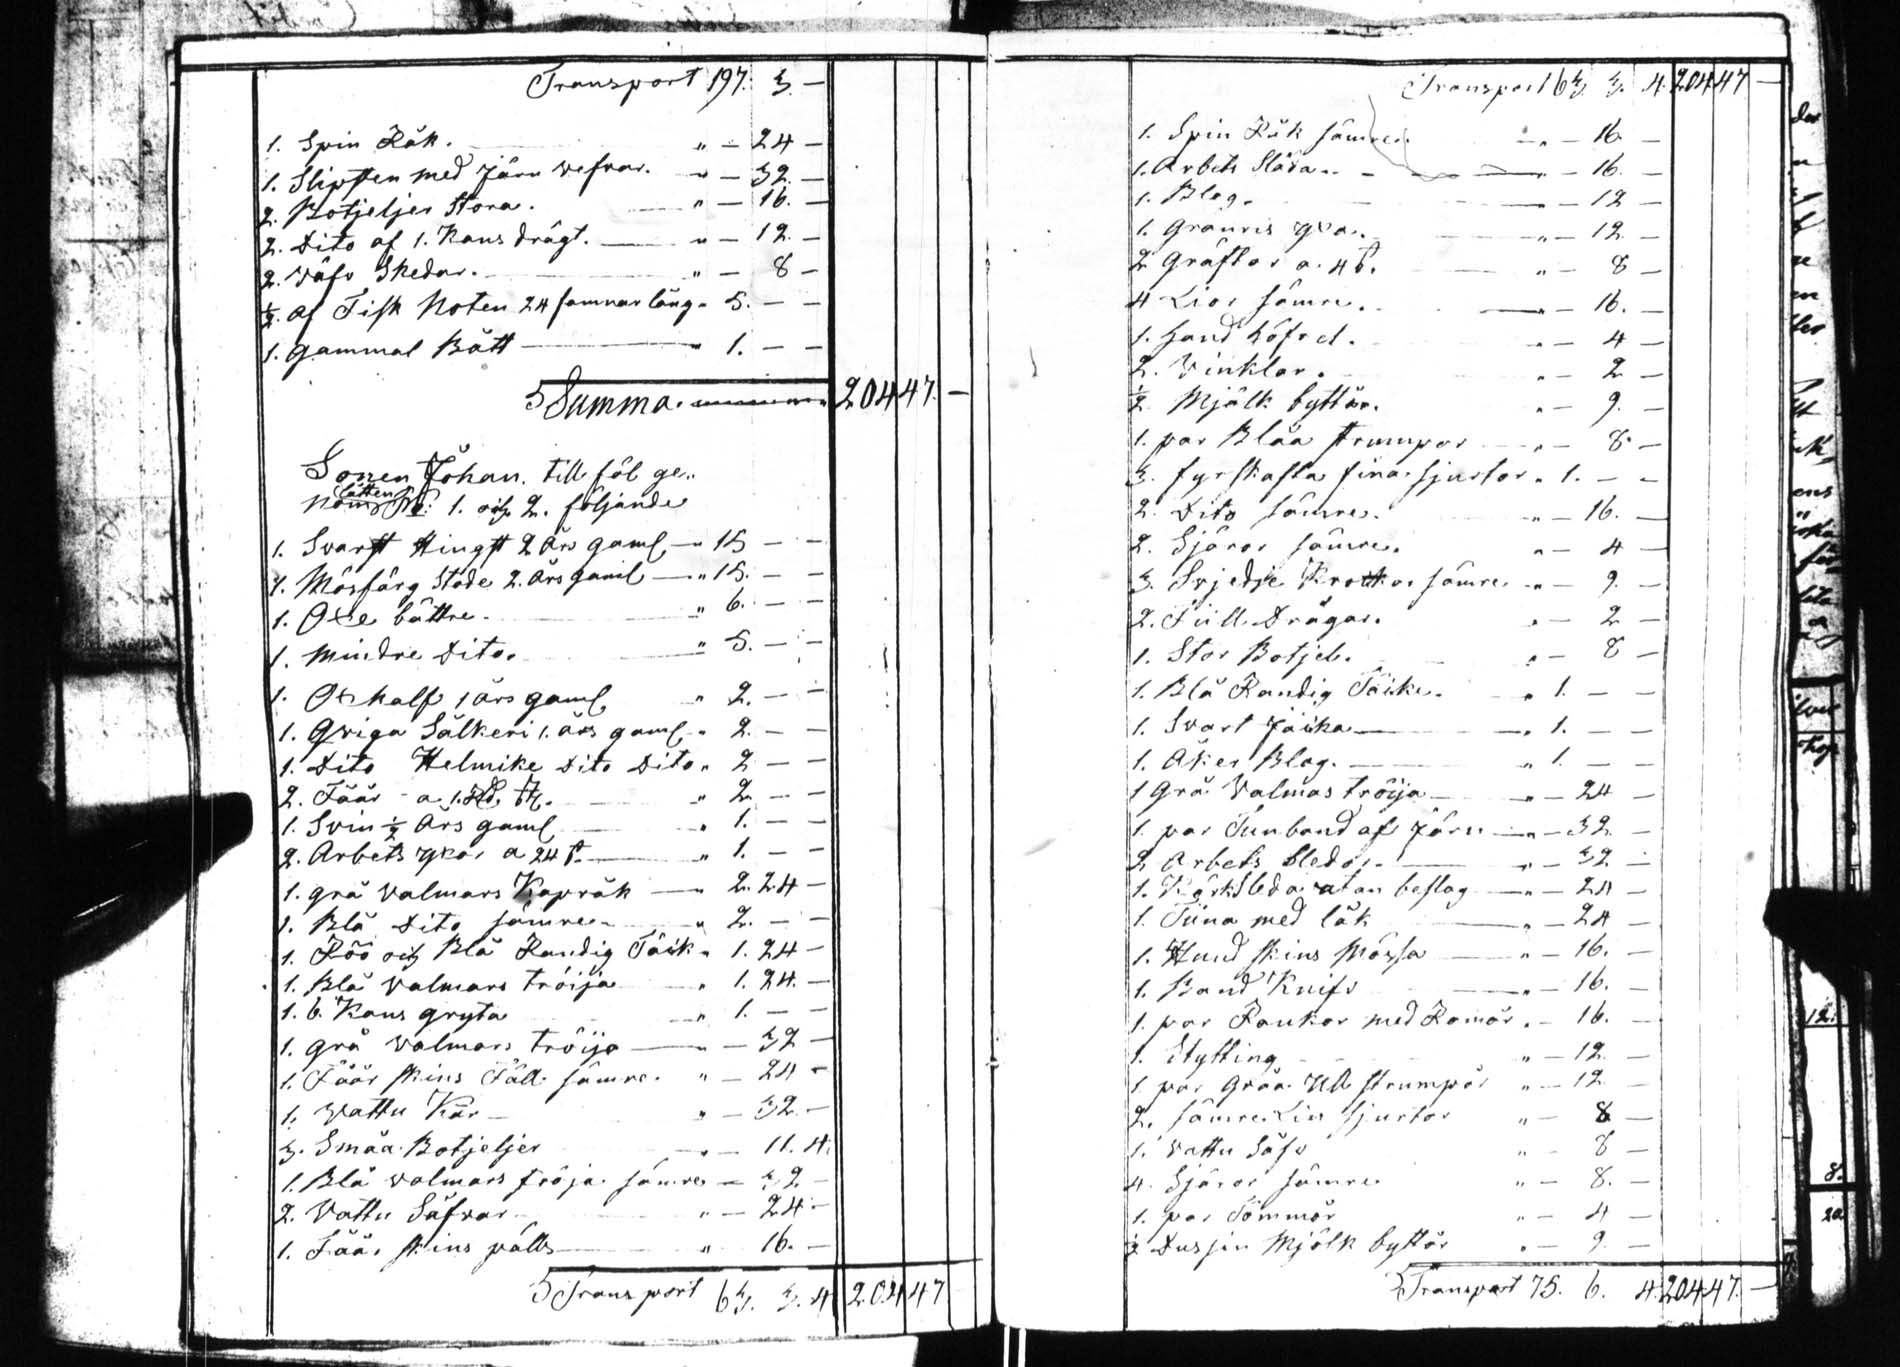 Transport 197. 3. –
1. Spin Råk. " – 24 –
1. Slipsten med järn vefvar. " – 32. –
2. Botjeljer Stora. " – 16. –
2. Dito af 1. Kans drägt. " – 12. –
2. Väfv Skedar. " – 8 –
½. af Fisk Noten 24 famnar lång " 5. – –
1. gammal Bått " 1. – –
Summa. 204 47. –
Sonen Johan. till föl ge..
lotten No: 1. och 2. följande
1. Svart Hingst 2 Års gaml " 15 – –
1. Mösfärg Stode 2. Års gaml " 15. – –
1. Oxe bättre. " 6. – –
1. mindre Dito. " 5. – –
1. Oxkalf 1 års gaml " 2. – –
1. Qviga Sälkeri 1. års gaml " 2. – –
1. Dito Helmike Dito Dito " 2 – –
2. Fåår a 1. Rd. " 2 – –
1. Svin ½ Års gaml " 1. – –
2. Arbets ykar a 24 " 1. – –
1. grå valmars Kapråk " 2. 24 –
1. Blå Dito sämre " 2. – –
1. Röö och Blå Randig Täck " 1. 24 –
1. Blå valmars tröija " 1. 24. –
1. 6. Kans gryta " 1. – –
1. grå valmars tröija " – 32 –
1. Fåår skins Fäll sämre. " – 24 –
1. Vattu Kar " – 32. –
3. Småa Botjeljer " – 11. 4.
1. Blå valmars tröja sämre – 32 –
2. Vattu Såfvar " – 24 –
1. Fåår skins päls " – 16. –
Transport 63. 3. 4 204 47 –
Transport 63. 3. 4. 204 47 –
1. Spin Råk sämre. " – 16. –
1. Arbets Släda. " – 16. –
1. Blog. " – 12 –
1. Granris yxa. " – 12. –
2 Gräftor a. 4 " – 8 –
4 Lior sämre. " – 16. –
1. hand höfvel. " – 4 –
2. Vinklar. " – 2 –
½. Mjölk byttor. " – 9. –
1. par Blåa strumpor " – 8. –
3. fyrskafta finar sjurtor " 1. – –
2. Dito sämre. " – 16. –
2. Sjäror sämre. " – 4 –
3. Svjedje Krokar sämre " – 9. –
2. Fiill Drägar. " – 2 –
1. Stor Botjel. " – 8 –
1. Blå Randig Täike. " 1. – –
1. Svart Jäcka " 1. – –
1. Åker Blog. " 1. – –
1 Grå Valmas tröija " – 24 –
1. par Tunband af Järn " – 32 –
2 Arbets Sledor. " – 32 –
1. Sleda utan beslag " – 24 –
1. Tiina med låk " – 24 –
1. Hund skins Mössa " – 16. –
1. Band Knifv " – 16. –
1. par Rankor med Romor " – 16. –
1. Stytting " – 12. –
1 par Gråa Ull strumpor " – 12 –
2. sämre Lin sjurtor " – 8 –
1. Vattu Såfv " – 8 –
4. Sjäror sämre " – 8. –
1. par Tömmör " – 4 –
½ Dussin Mjölk byttör " – 9. –
Transport 75. 6. 4. 204 47. –